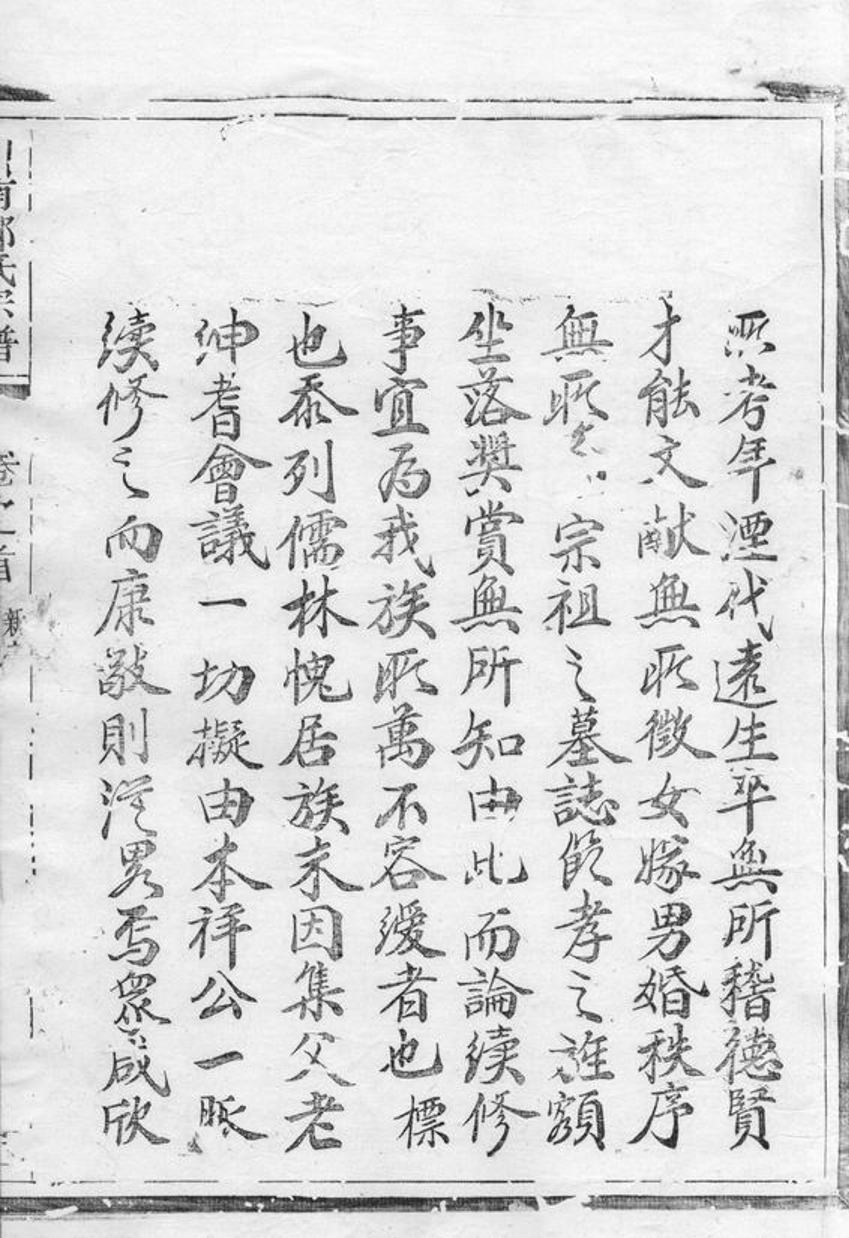 所考年湮代遠生卒無所稽德賢
才能文献無所徵女嫁男婚秩序
無所 宗祖之墓誌節孝之旌額
坐落奬賞無所知由此而論續修
事宜為我族所萬不容緩者也標
也忝列儒林愧居族末因集父老
紳耆會議一切擬由本祥公一脈
續修之而康敲則從畧焉衆咸欣
氏宗譜
卷之首